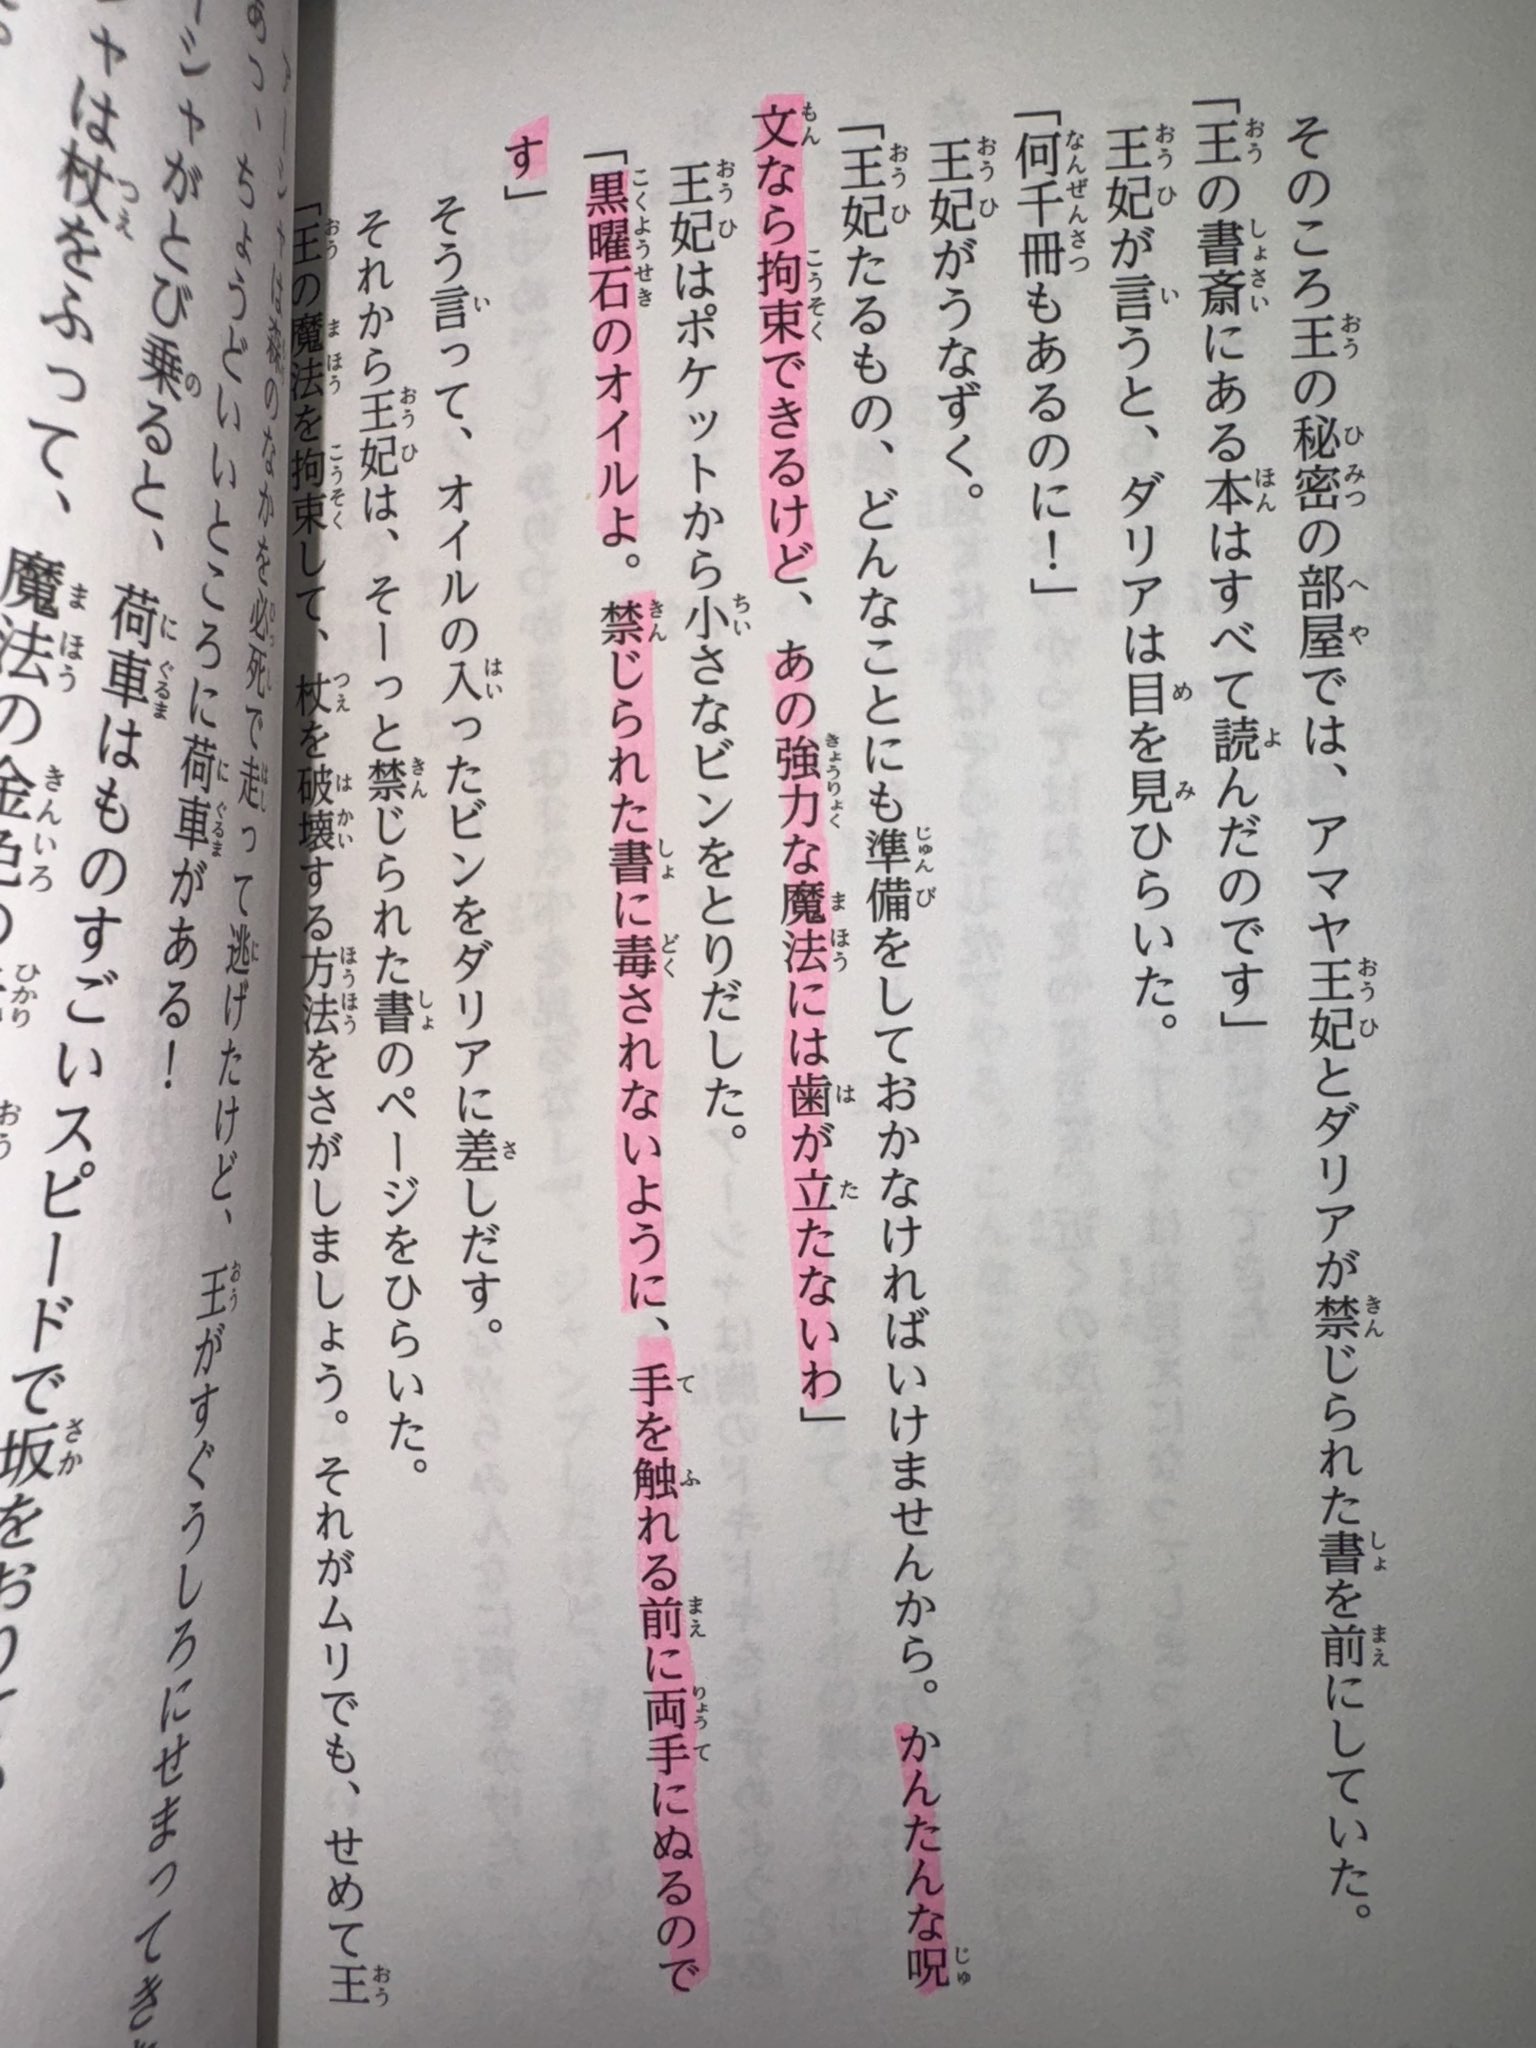 そのころ王の秘密の部屋では、アマヤ王妃とダリアが禁じられた書を前にしていた。
「王の書斎にある本はすべて読んだのです」
王妃が言うと、ダリアは目を見ひらいた。
「何千冊もあるのに！」
王妃がうなずく。
「王妃たるもの、どんなことにも準備をしておかなければいけませんから。かんたんな呪
文なら拘束できるけど、あの強力な魔法には歯が立たないわ」
王妃はポケットから小さなビンをとりだした。
「黒曜石のオイルよ。禁じられた書に毒されないように、手を触れる前に両手にぬるので
す」
そう言って、オイルの入ったビンをダリアに差しだす。
それから王妃は、そーっと禁じられた書のページをひらいた。
「王の魔法を拘束して、杖を破壊する方法をさがしましょう。それがムリでも、せめて王
のなかを必死で走って逃げたけど、王がすぐうしろにせまってき
ちょうどいいところに荷車がある！
がとび乗ると、荷車はものすごいスピードで坂をおり
は杖をふって、魔法の金色の